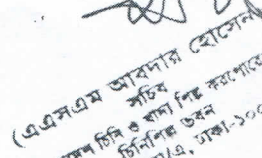 (এএসএম আবদার হোসেন
সচিব
চিনি ও খাদ্য শিল্প
চিনিশিল্প ভবন
ঢাকা-১০০